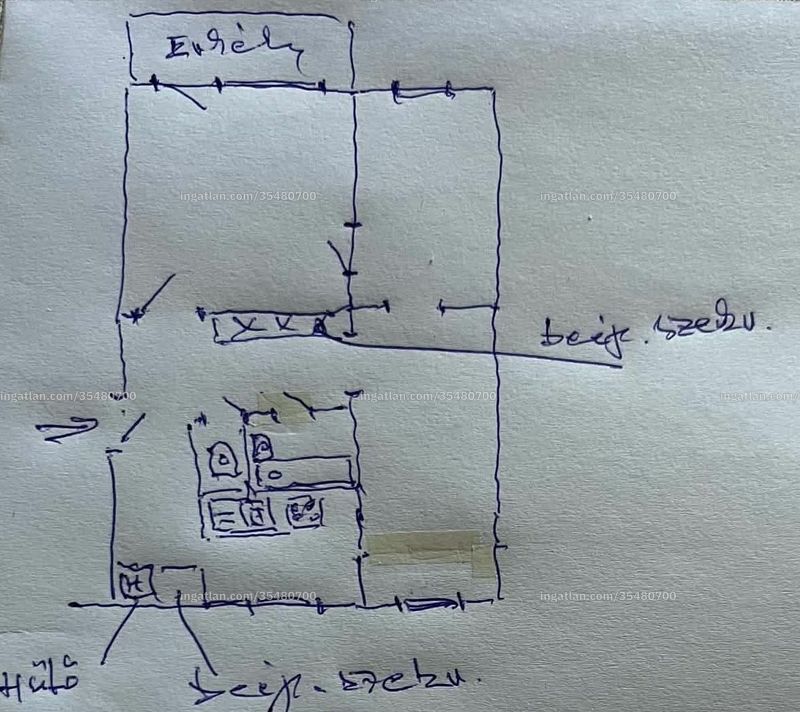 Erkély
ingatlan.com/35480700
ingatlan.com/35480700
beép. szekr.
ingatlan.com/35480700
ingatlan.com/35480700
ingatlan.com/35480700
H
ingatlan.com/35480700
ingatlan.com/35480700
Hűtő
beép. szekr.